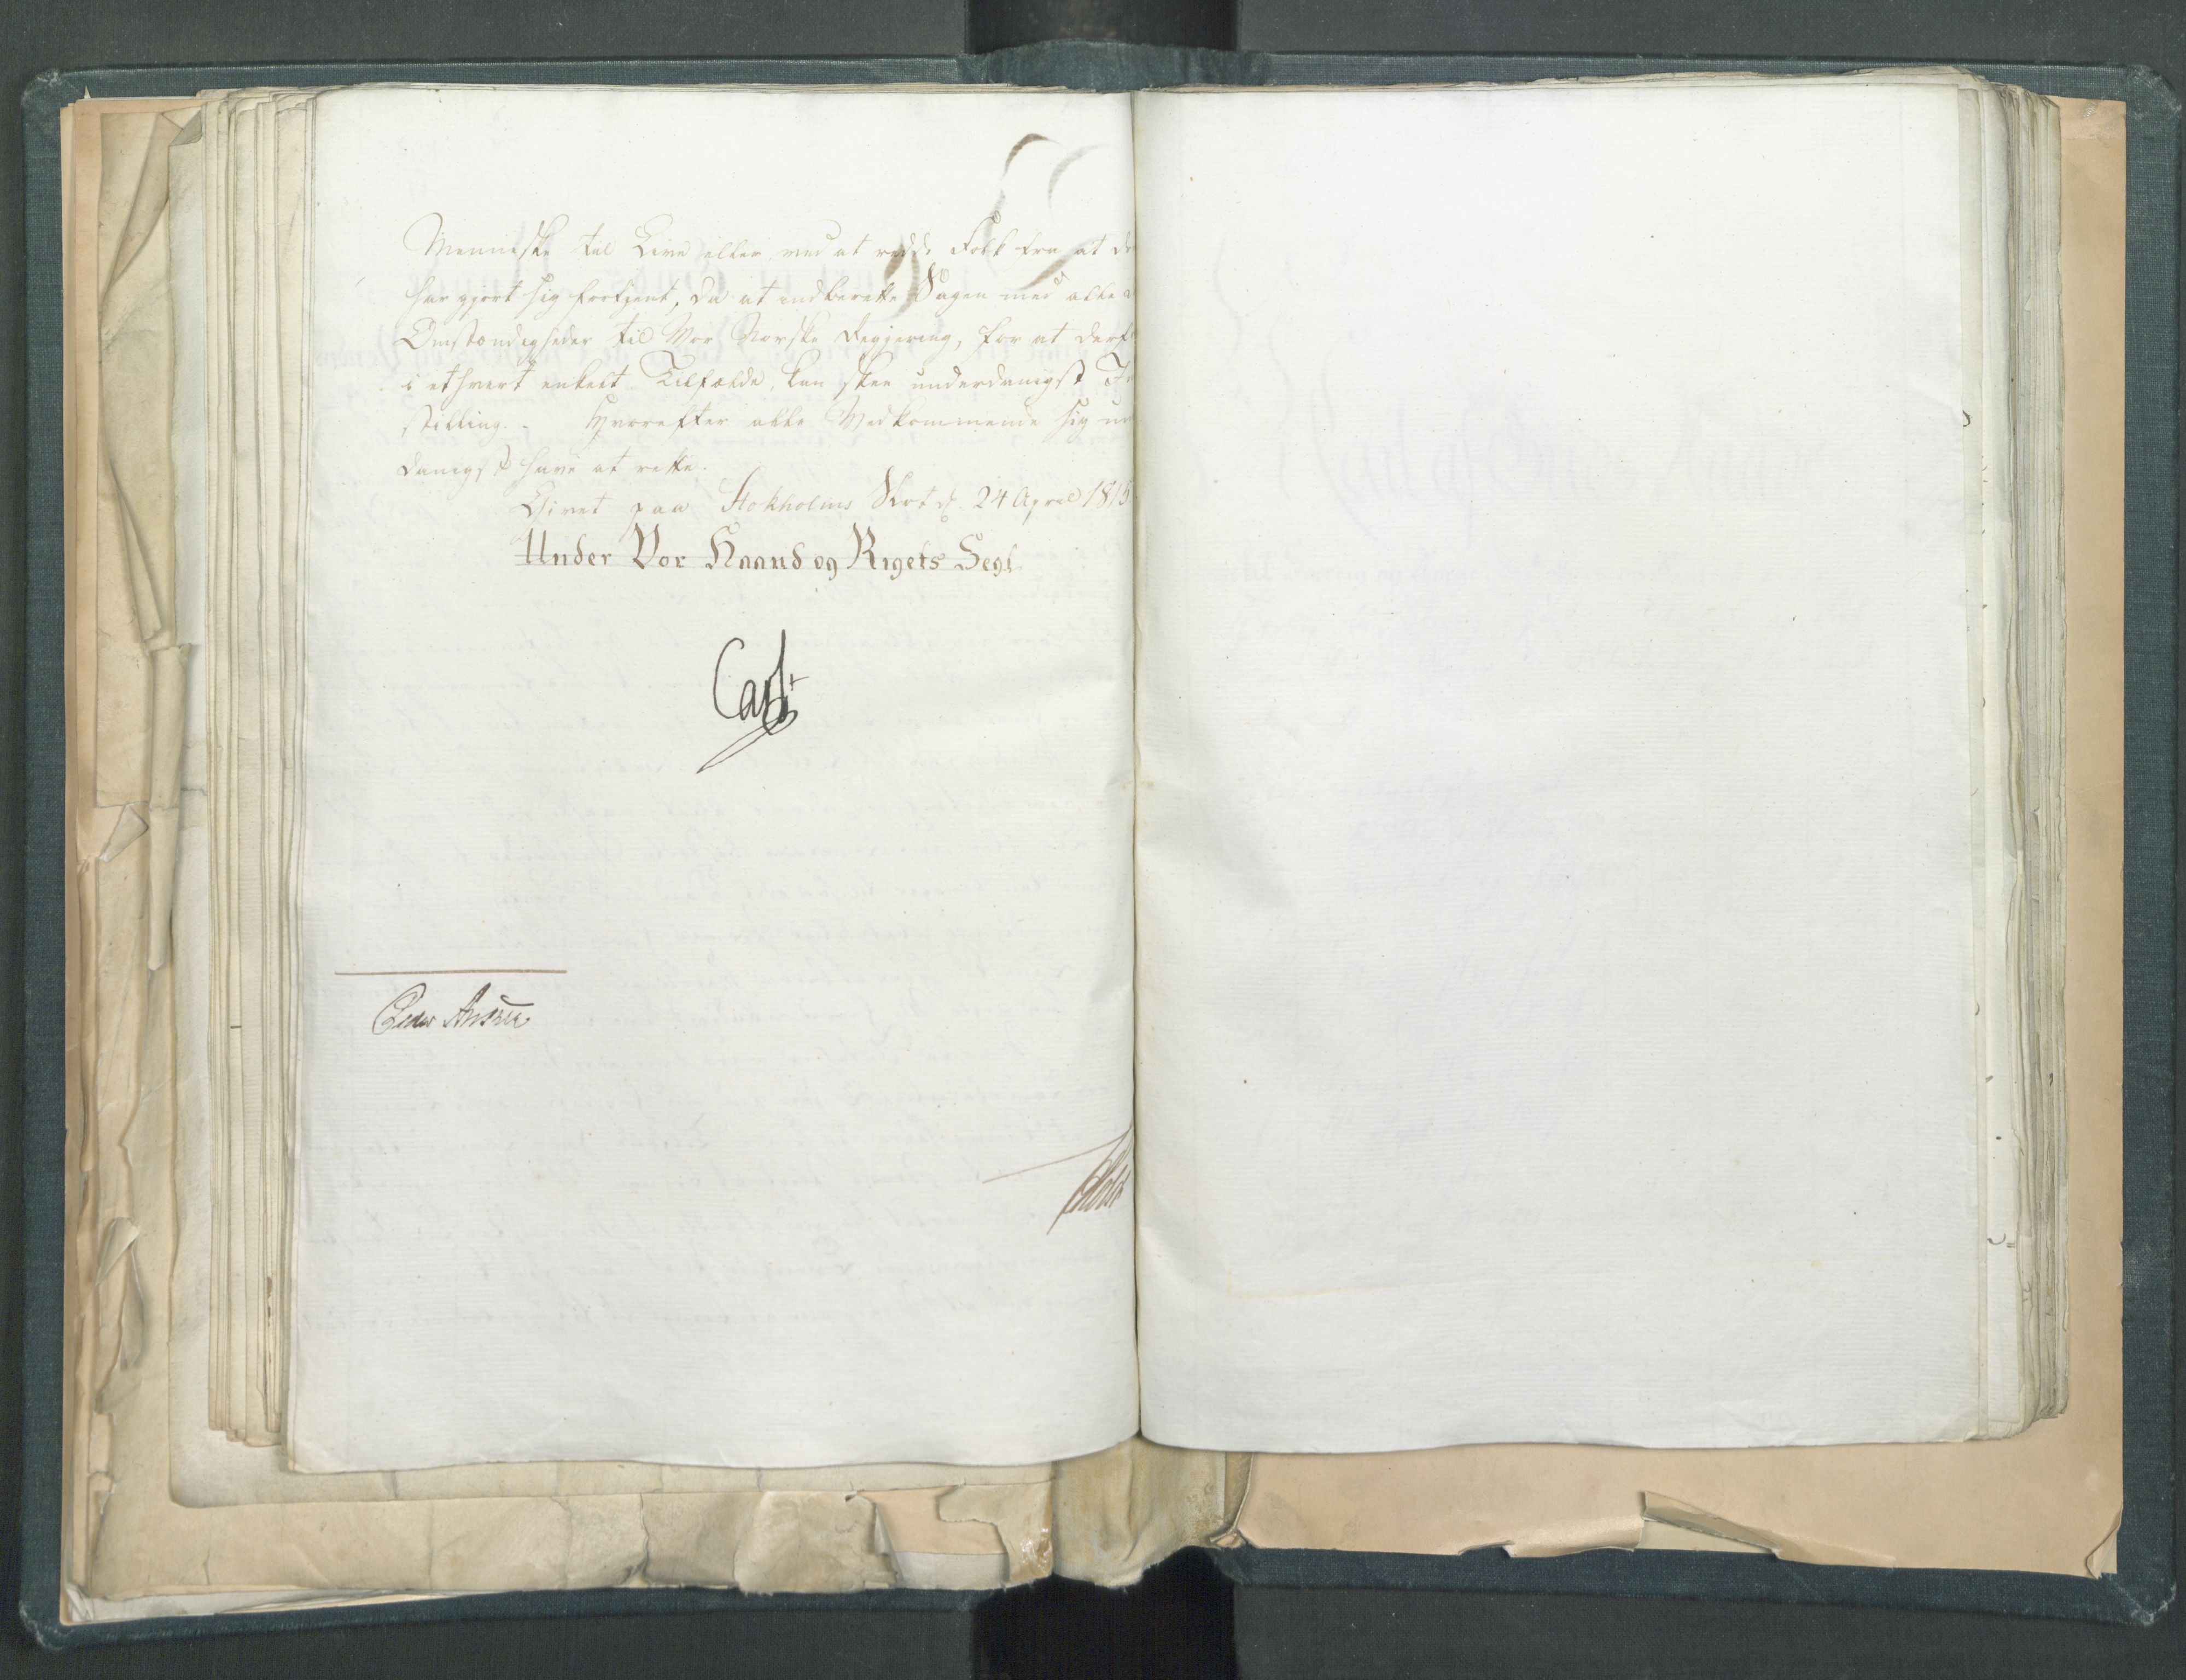 Menniske til Live eller ved at redde Folk fra at
har gjort sig fortjent, da at indberette Sagen med alle
Omstændigheder til Vor Norske Regjering, for at derf
i ethvert enkelt Tilfælde, kan skee underdanigst
stilling. - Hvorefter alle Vedkommende sig un
danigst have at rette.
Givet paa Stokholms Slot d. 24 April 1815
Under Vor Haand og Rigets Segl
Carl
Peder Anker
Holst